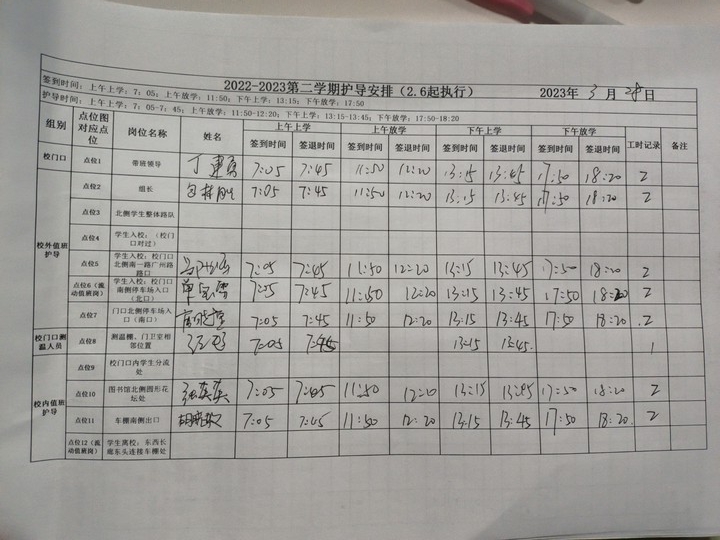 2022-2023第二学期护导安排（2.6起执行） 2023年 3 月 28 日
签到时间：上午上学：7：05；上午放学：11:50；下午上学：13:15；下午放学：17:50
护导时间：上午上学：7：05-7：45；上午放学：11:50-12:20；下午上学：13:15-13:45；下午放学：17:50-18:20
组别 点位图对应点位 岗位名称 姓名 上午上学 上午放学 下午上学 下午放学 工时记录 备注
签到时间 签退时间 签到时间 签退时间 签到时间 签退时间 签到时间 签退时间
校门口 点位1 带班领导 7:05 7:45 11:50 12:20 13:15 13:45 17:50 18:20 2
校外值班护导
点位2 组长 7:05 7:45 11:50 12:20 13:15 13:45 17:50 18:20 2
点位3 北侧学生整体路队
点位4 学生入校：（校门口对过）
点位5 学生入校：校门口北侧南一路广州路路口 7:05 7:45 11:50 12:20 13:15 13:45 17:50 18:20 2
点位6（流动值班岗） 学生入校：校门口南侧停车场入口（北口） 7:05 7:45 11:50 12:20 13:15 13:45 17:50 18:20 2
点位7 门口北侧停车场入口（南口） 7:05 7:45 11:50 12:20 13:15 13:45 17:50 18:20 2
校门口测温人员 点位8 测温棚、门卫室相邻位置 7:05 7:45 13:15 13:45 1
校内值班护导
点位9 校门口内学生分流处
点位10 图书馆北侧圆形花坛处 张英英 7:05 7:45 11:50 12:20 13:15 13:45 17:50 18:20 2
点位11 车棚南侧出口 7:05 7:45 11:50 12:20 13:15 13:45 17:50 18:20 2
点位12（流动值班岗） 学生离校：东西长廊东头连接车棚处